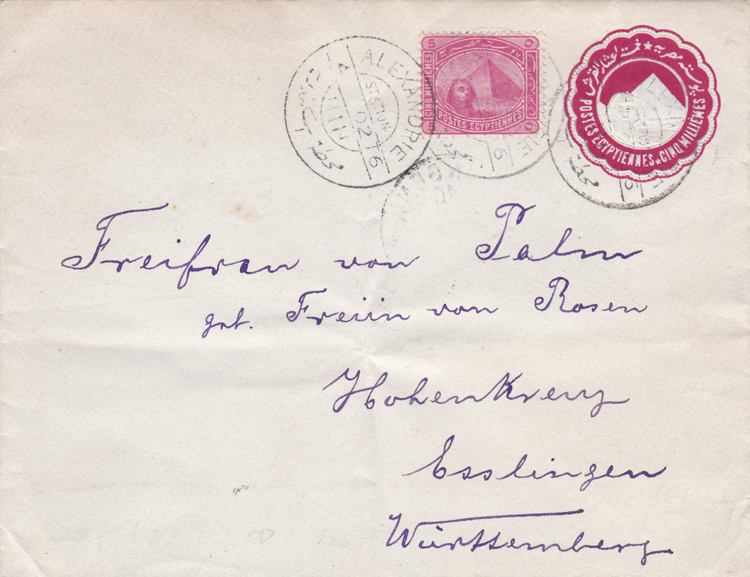 ALEXANDRIE
STATION
5 5
CINQ MILLIEMES
POSTES EGYPTIENNES
POSTES EGYPTIENNES * CINQ MILLIÈMES
Freifrau von Palm
geb. Freiin von Rosen
Hohenkreuz
Esslingen
Württemberg.